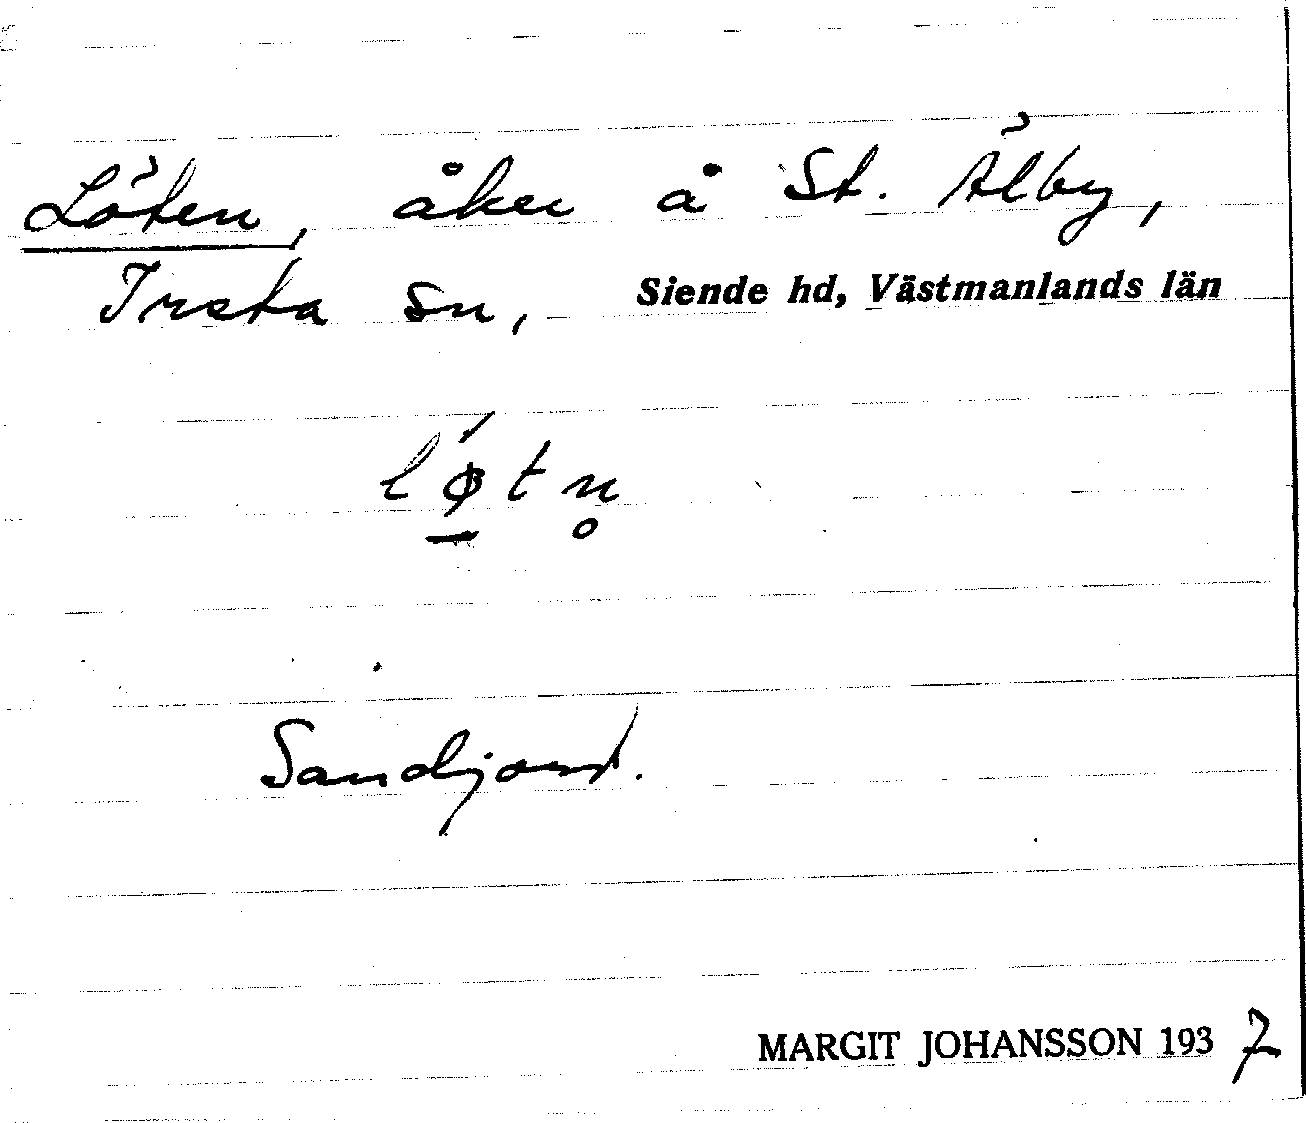 Löten, åker å St. Älby,
Irsta sn, Siende hd, Västmanlands län
lǿ̱tn̥
Sandjord.
MARGIT JOHANSSON 1937